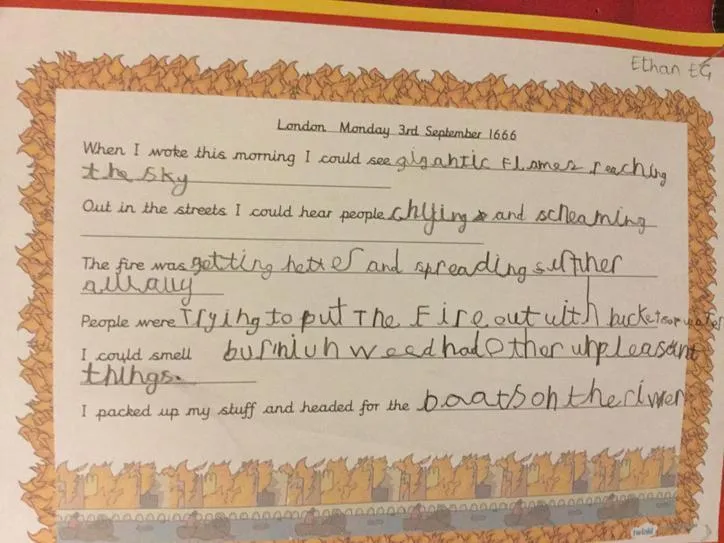 Ethan EG
London Monday 3rd September 1666
When I woke this morning I could see gigantic flames reaching
the sky
Out in the streets I could hear people chying and screaming
The fire was getting hetter and spreading surther
allrally
People were Trying to put The Fire out with buckets of water
I could smell burniuh weed had Other unpleasant
things.
I packed up my stuff and headed for the boats on the river
twinkl